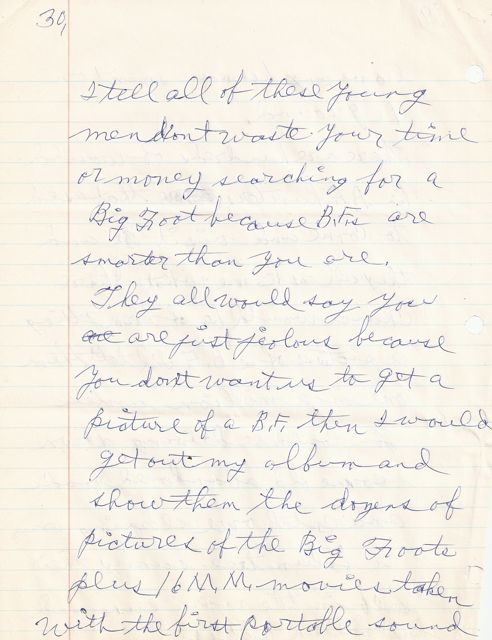 30,
I tell all of these young
men dont waste your time
or money searching for a
Big Foot because B.F.s are
smarter than you are.
They all would say you
are are just jeolous because
you dont want us to get a
picture of a B.F. then I would
get out my album and
show them the dozens of
pictures of the Big Foots
plus 16 M.M. movies taken
with the first portable sound